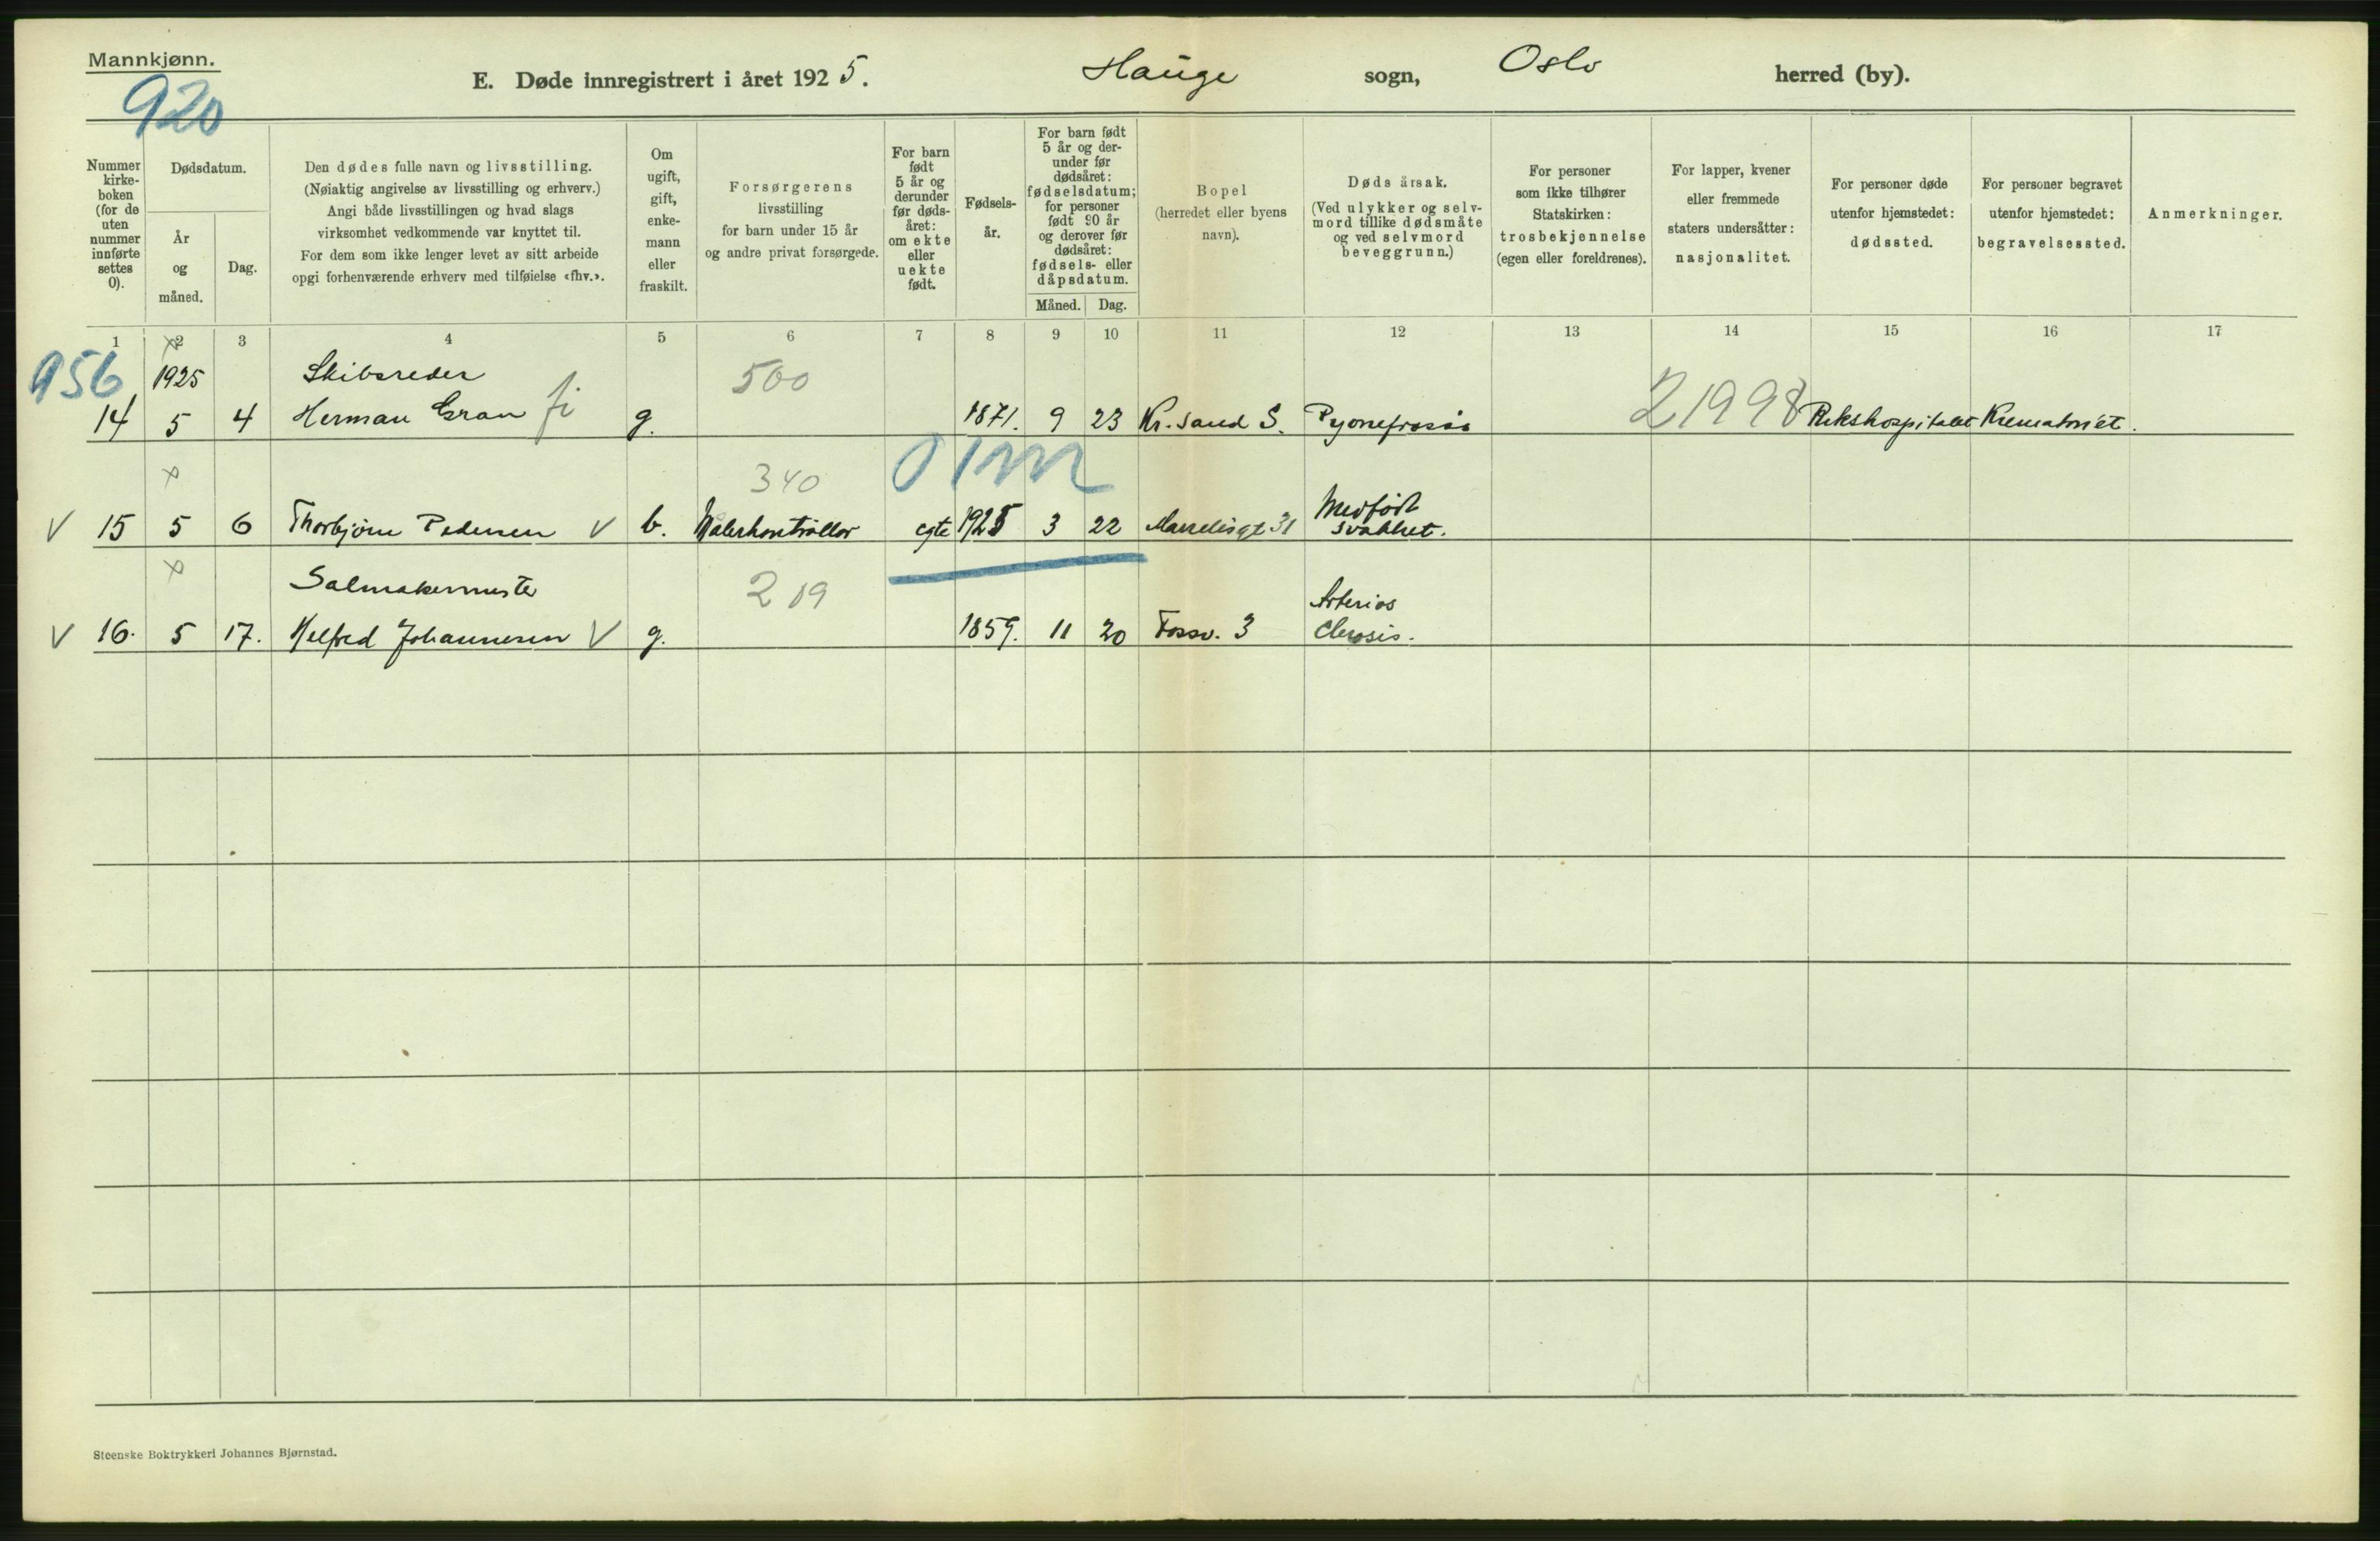 Mannkjønn.
920
E. Døde innregistrert i året 1925. Hauge sogn, Oslo herred (by).
Nummer
kirke-
boken
(for de
uten
nummer
innførte
settes
0).
Dødsdatum.
År
og
måned.
Dag.
Den dødes fulle navn og livsstilling.
(Nøiaktig angivelse av livsstilling og erhverv.)
Angi både livsstillingen og hvad slags
virksomhet vedkommende var knyttet til.
For dem som ikke lenger levet av sitt arbeide
opgi forhenværende erhverv med tilføielse «fhv.».
Om
ugift,
gift,
enke-
mann
eller
fraskilt.
Forsørgerens
livsstilling
for barn under 15 år
og andre privat forsørgede.
For barn
født
5 år og
derunder
før døds-
året:
om ekte
eller
uekte
født.
Fødsels-
år.
For barn født
5 år og der-
under før
dødsåret:
fødselsdatum;
for personer
født 90 år
og derover før
dødsåret:
fødsels- eller
dåpsdatum.
Måned. Dag.
Bopel
(herredet eller byens
navn).
Dødsårsak.
(Ved ulykker og selv-
mord tillike dødsmåte
og ved selvmord
beveggrunn.)
For personer
som ikke tilhører
Statskirken:
trosbekjennelse
(egen eller foreldrenes).
For lapper, kvener
eller fremmede
staters undersåtter:
nasjonalitet.
For personer døde
utenfor hjemstedet:
dødssted.
For personer begravet
utenfor hjemstedet:
begravelsessted.
Anmerkninger.
1 2 3 4 5 6 7 8 9 10 11 12 13 14 15 16 17
956 1925 Skibsreder 500
14 5 4 Herman Gran fi g. 1871. 9 23 Kr.sand S. Pyonefrosis 21998 Rikshospitalet Krematoriet.
x 340 01m
V 15 5 6 Thorbjørn Pedersen V b. Målerkontrollør egte 1925 3 22 31 Medfødt
svakhet.
x Salmakermester 219
V 16. 5 17. Helfred Johannesen V g. 1859. 11 20 Fossv. 3 Arterios
clerosis.
Steenske Boktrykkeri Johannes Bjørnstad.